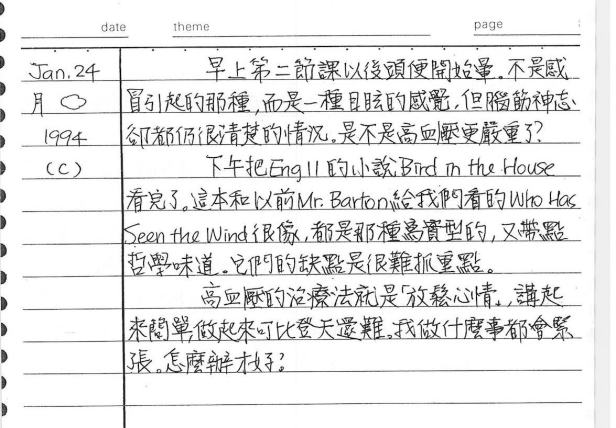 date theme page
Jan. 24 早上第二節課以後頭便開始暈。不是感
月 冒引起的那種，而是一種目眩的感覺，但腦筋神志
1994 卻都仍很清楚的情況。是不是高血壓更嚴重了？
(C) 下午把Eng 11 的小說Bird in the House
看完了。這本和以前Mr. Barton給我們看的Who Has
Seen the Wind 很像，都是那種寫實型的，又帶點
哲學味道。它們的缺點是很難抓重點。
高血壓的治療法就是「放鬆心情」，講起
來簡單，做起來可比登天還難。我做什麼事都會緊
張。怎麼辦才好？